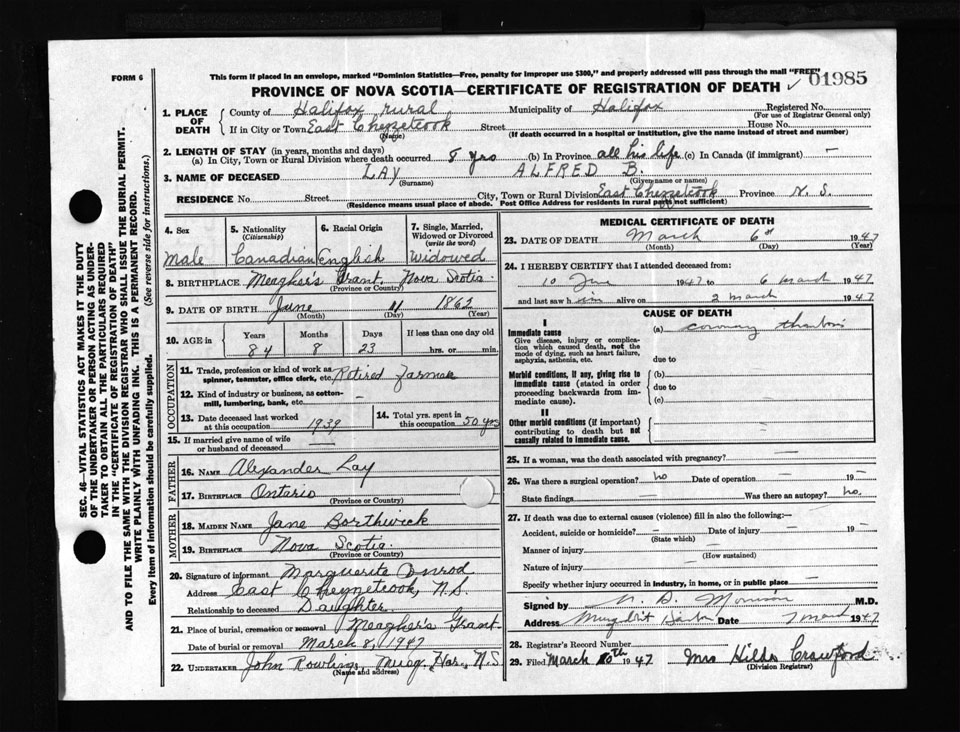 FORM 6
This form if placed in an envelope, marked "Dominion Statistics—Free, penalty for improper use $300," and properly addressed will pass through the mail "FREE"
PROVINCE OF NOVA SCOTIA—CERTIFICATE OF REGISTRATION OF DEATH ✓ 01985
SEC. 46—VITAL STATISTICS ACT MAKES IT THE DUTY
OF THE UNDERTAKER OR PERSON ACTING AS UNDER-
TAKER TO OBTAIN ALL THE PARTICULARS REQUIRED
IN THE "CERTIFICATE OF REGISTRATION OF DEATH"
AND TO FILE THE SAME WITH THE DIVISION REGISTRAR WHO SHALL ISSUE THE BURIAL PERMIT.
WRITE PLAINLY WITH UNFADING INK. THIS IS A PERMANENT RECORD.
Every item of information should be carefully supplied. (See reverse side for instructions.)
1. PLACE OF DEATH
County of Halifax rural Municipality of Halifax Registered No.
(For use of Registrar General only)
If in City or Town East Chezzetcook Street House No.
(Name) (If death occurred in a hospital or institution, give the name instead of street and number)
2. LENGTH OF STAY (in years, months and days)
(a) In City, Town or Rural Division where death occurred 8 yrs (b) In Province all his life (c) In Canada (if immigrant) —
3. NAME OF DECEASED LAY ALFRED B.
(Surname) (Given name or names)
RESIDENCE No. Street City, Town or Rural Division East Chezzetcook Province N. S.
(Residence means usual place of abode. Post Office Address for residents in rural parts not sufficient)
4. Sex
Male
5. Nationality
(Citizenship)
Canadian
6. Racial Origin
English
7. Single, Married, Widowed or Divorced
(write the word)
Widowed
8. BIRTHPLACE Meagher's Grant, Nova Scotia.
(Province or Country)
9. DATE OF BIRTH June 11 1862
(Month) (Day) (Year)
10. AGE in Years Months Days If less than one day old
84 8 23 hrs. or min.
OCCUPATION
11. Trade, profession or kind of work as
spinner, teamster, office clerk, etc. Retired Farmer
12. Kind of industry or business, as cotton-
mill, lumbering, bank, etc. —
13. Date deceased last worked
at this occupation 1939
14. Total yrs. spent in
this occupation 50 yrs
15. If married give name of wife
or husband of deceased
FATHER
16. NAME Alexander Lay
17. BIRTHPLACE Ontario
(Province or Country)
MOTHER
18. MAIDEN NAME Jane Borthwick
19. BIRTHPLACE Nova Scotia.
(Province or Country)
20. Signature of informant Marguerite Conrod
Address East Chezzetcook, N.S.
Relationship to deceased Daughter.
21. Place of burial, cremation or removal Meagher's Grant
Date of burial or removal March 8, 1947
22. UNDERTAKER John Rowlings, Musq. Har., N.S
(Name and address)
MEDICAL CERTIFICATE OF DEATH
23. DATE OF DEATH March 6th 1947
(Month) (Day) (Year)
24. I HEREBY CERTIFY that I attended deceased from:
10 1947 to 6 March 1947
and last saw him alive on 2 march 1947
CAUSE OF DEATH
I
Immediate cause
Give disease, injury or complica-
tion which caused death, not the
mode of dying, such as heart failure,
asphyxia, asthenia, etc.
(a) coronary thrombosis
due to
Morbid conditions, if any, giving rise to
immediate cause (stated in order
proceeding backwards from im-
mediate cause).
(b)
due to
(c)
II
Other morbid conditions (if important)
contributing to death but not
causally related to immediate cause.
25. If a woman, was the death associated with pregnancy? —
26. Was there a surgical operation? no Date of operation — 19 —
State findings — Was there an autopsy? no.
27. If death was due to external causes (violence) fill in also the following:—
Accident, suicide or homicide? — Date of injury — 19 —
(State which)
Manner of injury —
(How sustained)
Nature of injury —
Specify whether injury occurred in industry, in home, or in public place —
Signed by Morrison M.D.
Address Musqdbt Harbor Date 7 March 1947
28. Registrar's Record Number
29. Filed March 10th 1947 Mrs Hilda Crawford
(Division Registrar)